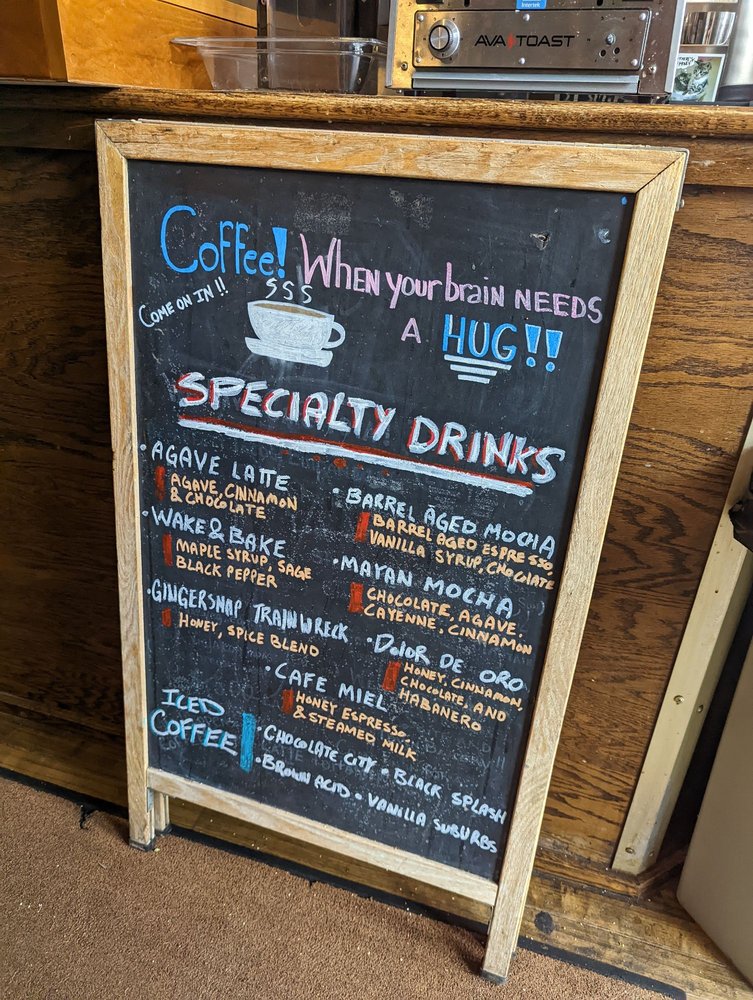 Intertek
AVATOAST
Coffee! When your brain NEEDS
A HUG!!
COME ON IN!!
SPECIALTY DRINKS
• AGAVE LATTE
AGAVE, CINNAMON
& CHOCOLATE
• WAKE & BAKE
MAPLE SYRUP, SAGE
BLACK PEPPER
• GINGERSNAP TRAINWRECK
HONEY, SPICE BLEND
• BARREL AGED MOCHA
BARREL AGED ESPRESSO,
VANILLA SYRUP, CHOCLATE
• MAYAN MOCHA
CHOCOLATE, AGAVE,
CAYENNE, CINNAMON
• DOLOR DE ORO
HONEY, CINNAMON,
CHOCOLATE, AND
HABANERO
• CAFE MIEL
HONEY ESPRESSO,
& STEAMED MILK
ICED
COFFEE
• CHOCOLATE CITY • BLACK SPLASH
• BROWN ACID • VANILLA SUBURBS